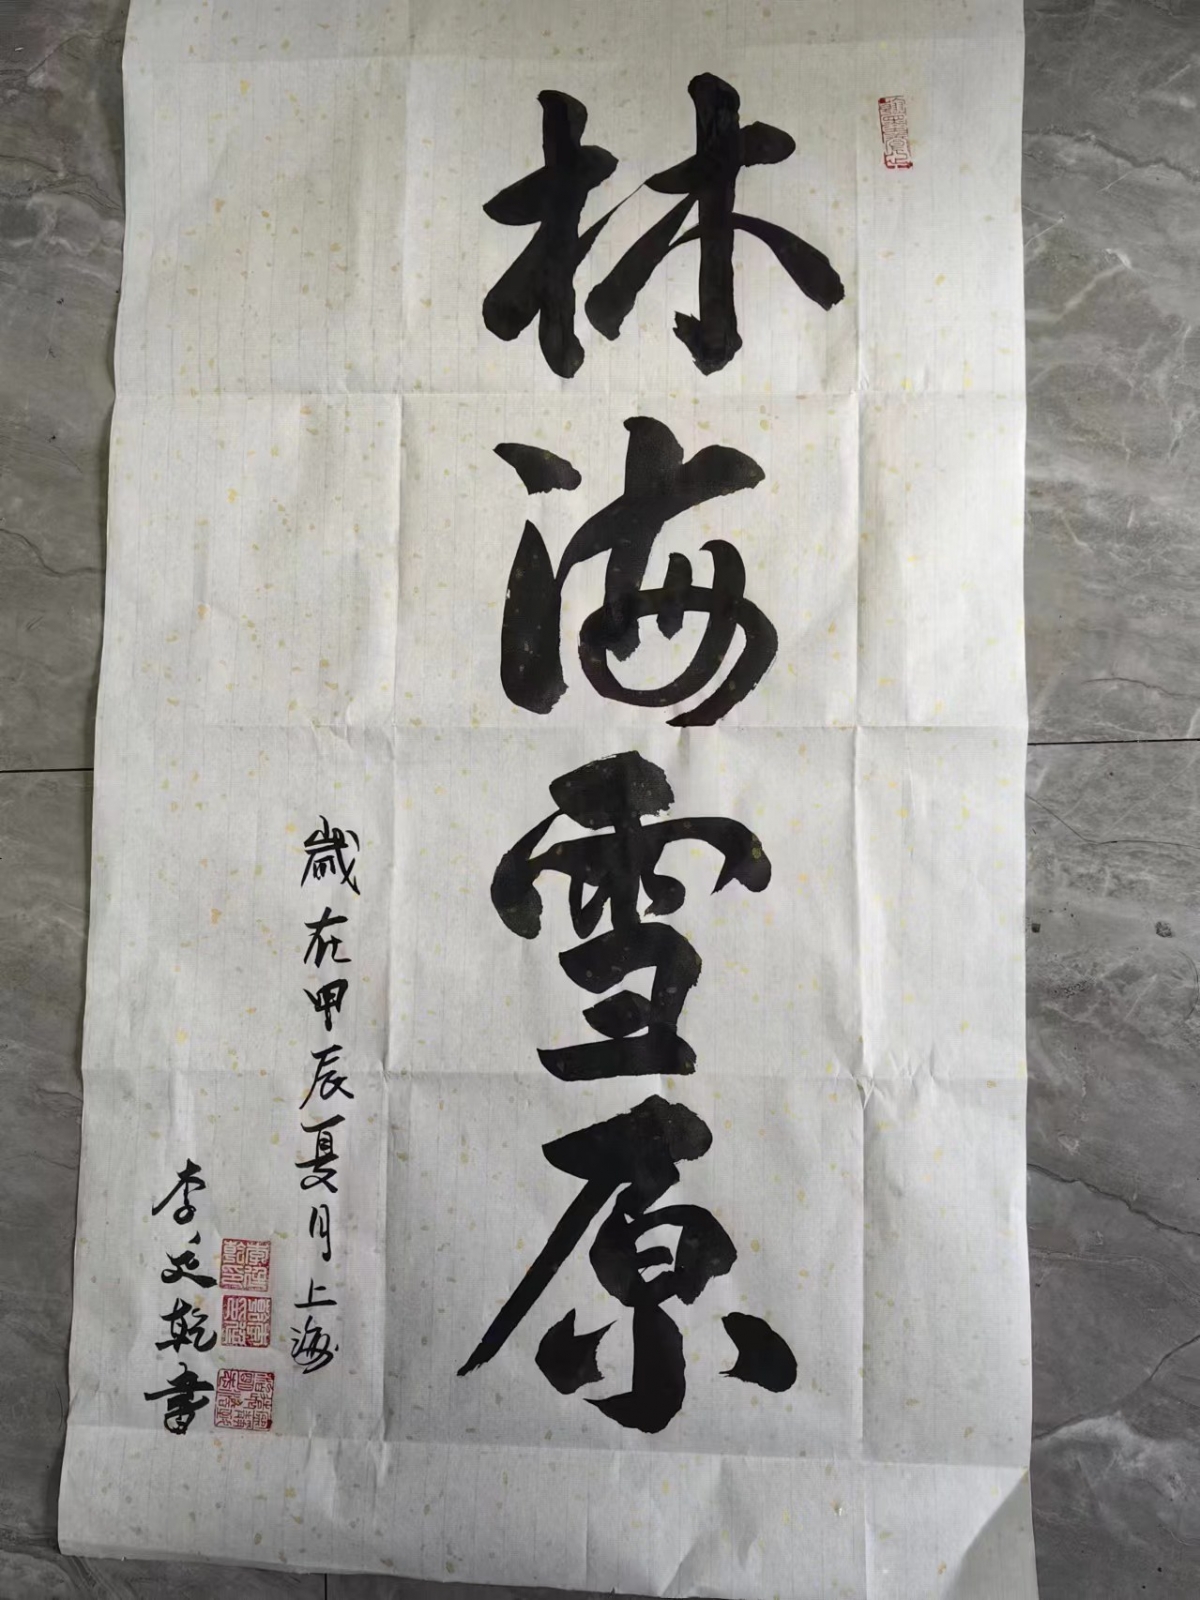 林海雪原
歲在甲辰夏月上海
李廷乾書